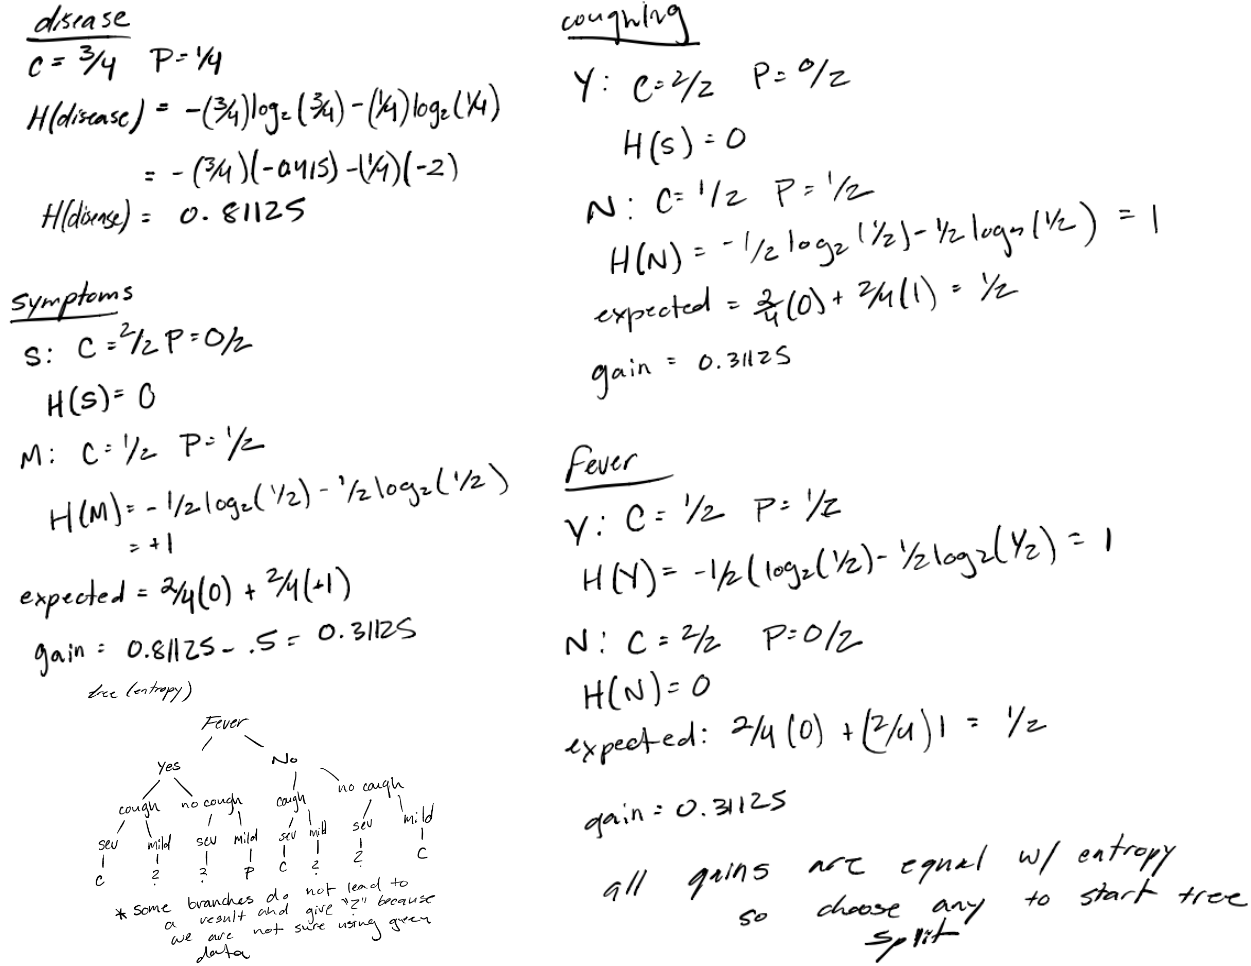 disease
C = 3/4 P = 1/4
H(disease) = -(3/4)log₂(3/4) - (1/4)log₂(1/4)
= -(3/4)(-0.415) - (1/4)(-2)
H(disease) = 0.81125
symptoms
S: C = 2/2 P = 0/2
H(S) = 0
M: C = 1/2 P = 1/2
H(M) = - 1/2 log₂(1/2) - 1/2 log₂(1/2)
= +1
expected = 2/4(0) + 2/4(+1)
gain = 0.81125 - .5 = 0.31125
tree (entropy)
Fever
Yes No
cough no cough cough no cough
sev mild sev mild sev mild sev mild
C ? ? P C ? ? C
* some branches do not lead to
a result and give "?" because
we are not sure using given
data
coughing
Y: C = 2/2 P = 0/2
H(S) = 0
N: C = 1/2 P = 1/2
H(N) = -1/2 log₂(1/2) - 1/2 log₂(1/2) = 1
expected = 2/4(0) + 2/4(1) = 1/2
gain = 0.31125
Fever
Y: C = 1/2 P = 1/2
H(Y) = -1/2(log₂(1/2) - 1/2 log₂(1/2) = 1
N: C = 2/2 P = 0/2
H(N) = 0
expected: 2/4(0) + (2/4)1 = 1/2
gain = 0.31125
all gains are equal w/ entropy
so choose any to start tree
split